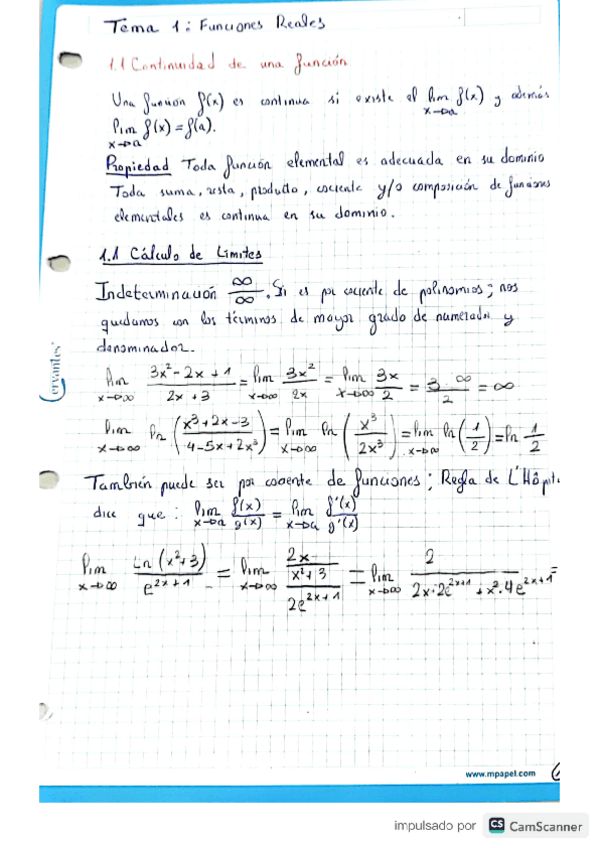 Tema 1: Funciones Reales
1.1 Continuidad de una función
Una función f(x) es continua si existe el lim x→a f(x) y además
lim x→a f(x) = f(a).
Propiedad Toda función elemental es adecuada en su dominio
Toda suma, resta, producto, cociente y/o composición de funciones
elementales es continua en su dominio.
1.1 Cálculo de Límites
Indeterminación ∞/∞. Si es por cociente de polinomios; nos
quedamos con los términos de mayor grado de numerador y
denominador.
lim x→∞ (3x²-2x+1)/(2x+3) = lim x→∞ 3x²/2x = lim x→∞ 3x/2 = 3∞/2 = ∞
lim x→∞ ln((x³+2x-3)/(4-5x+2x³)) = lim x→∞ ln(x³/2x³) = lim x→∞ ln(1/2) = ln 1/2
También puede ser por cociente de funciones; Regla de L'Hôpit
dice que: lim x→a f(x)/g(x) = lim x→a f'(x)/g'(x)
lim x→∞ Ln(x²+3)/e^(2x+1) = lim x→∞ (2x/(x²+3))/(2e^(2x+1)) = lim x→∞ 2/(2x·2e^(2x+1) + x²·4e^(2x+1)) =
cervantes
www.mpapel.com
impulsado por CS CamScanner